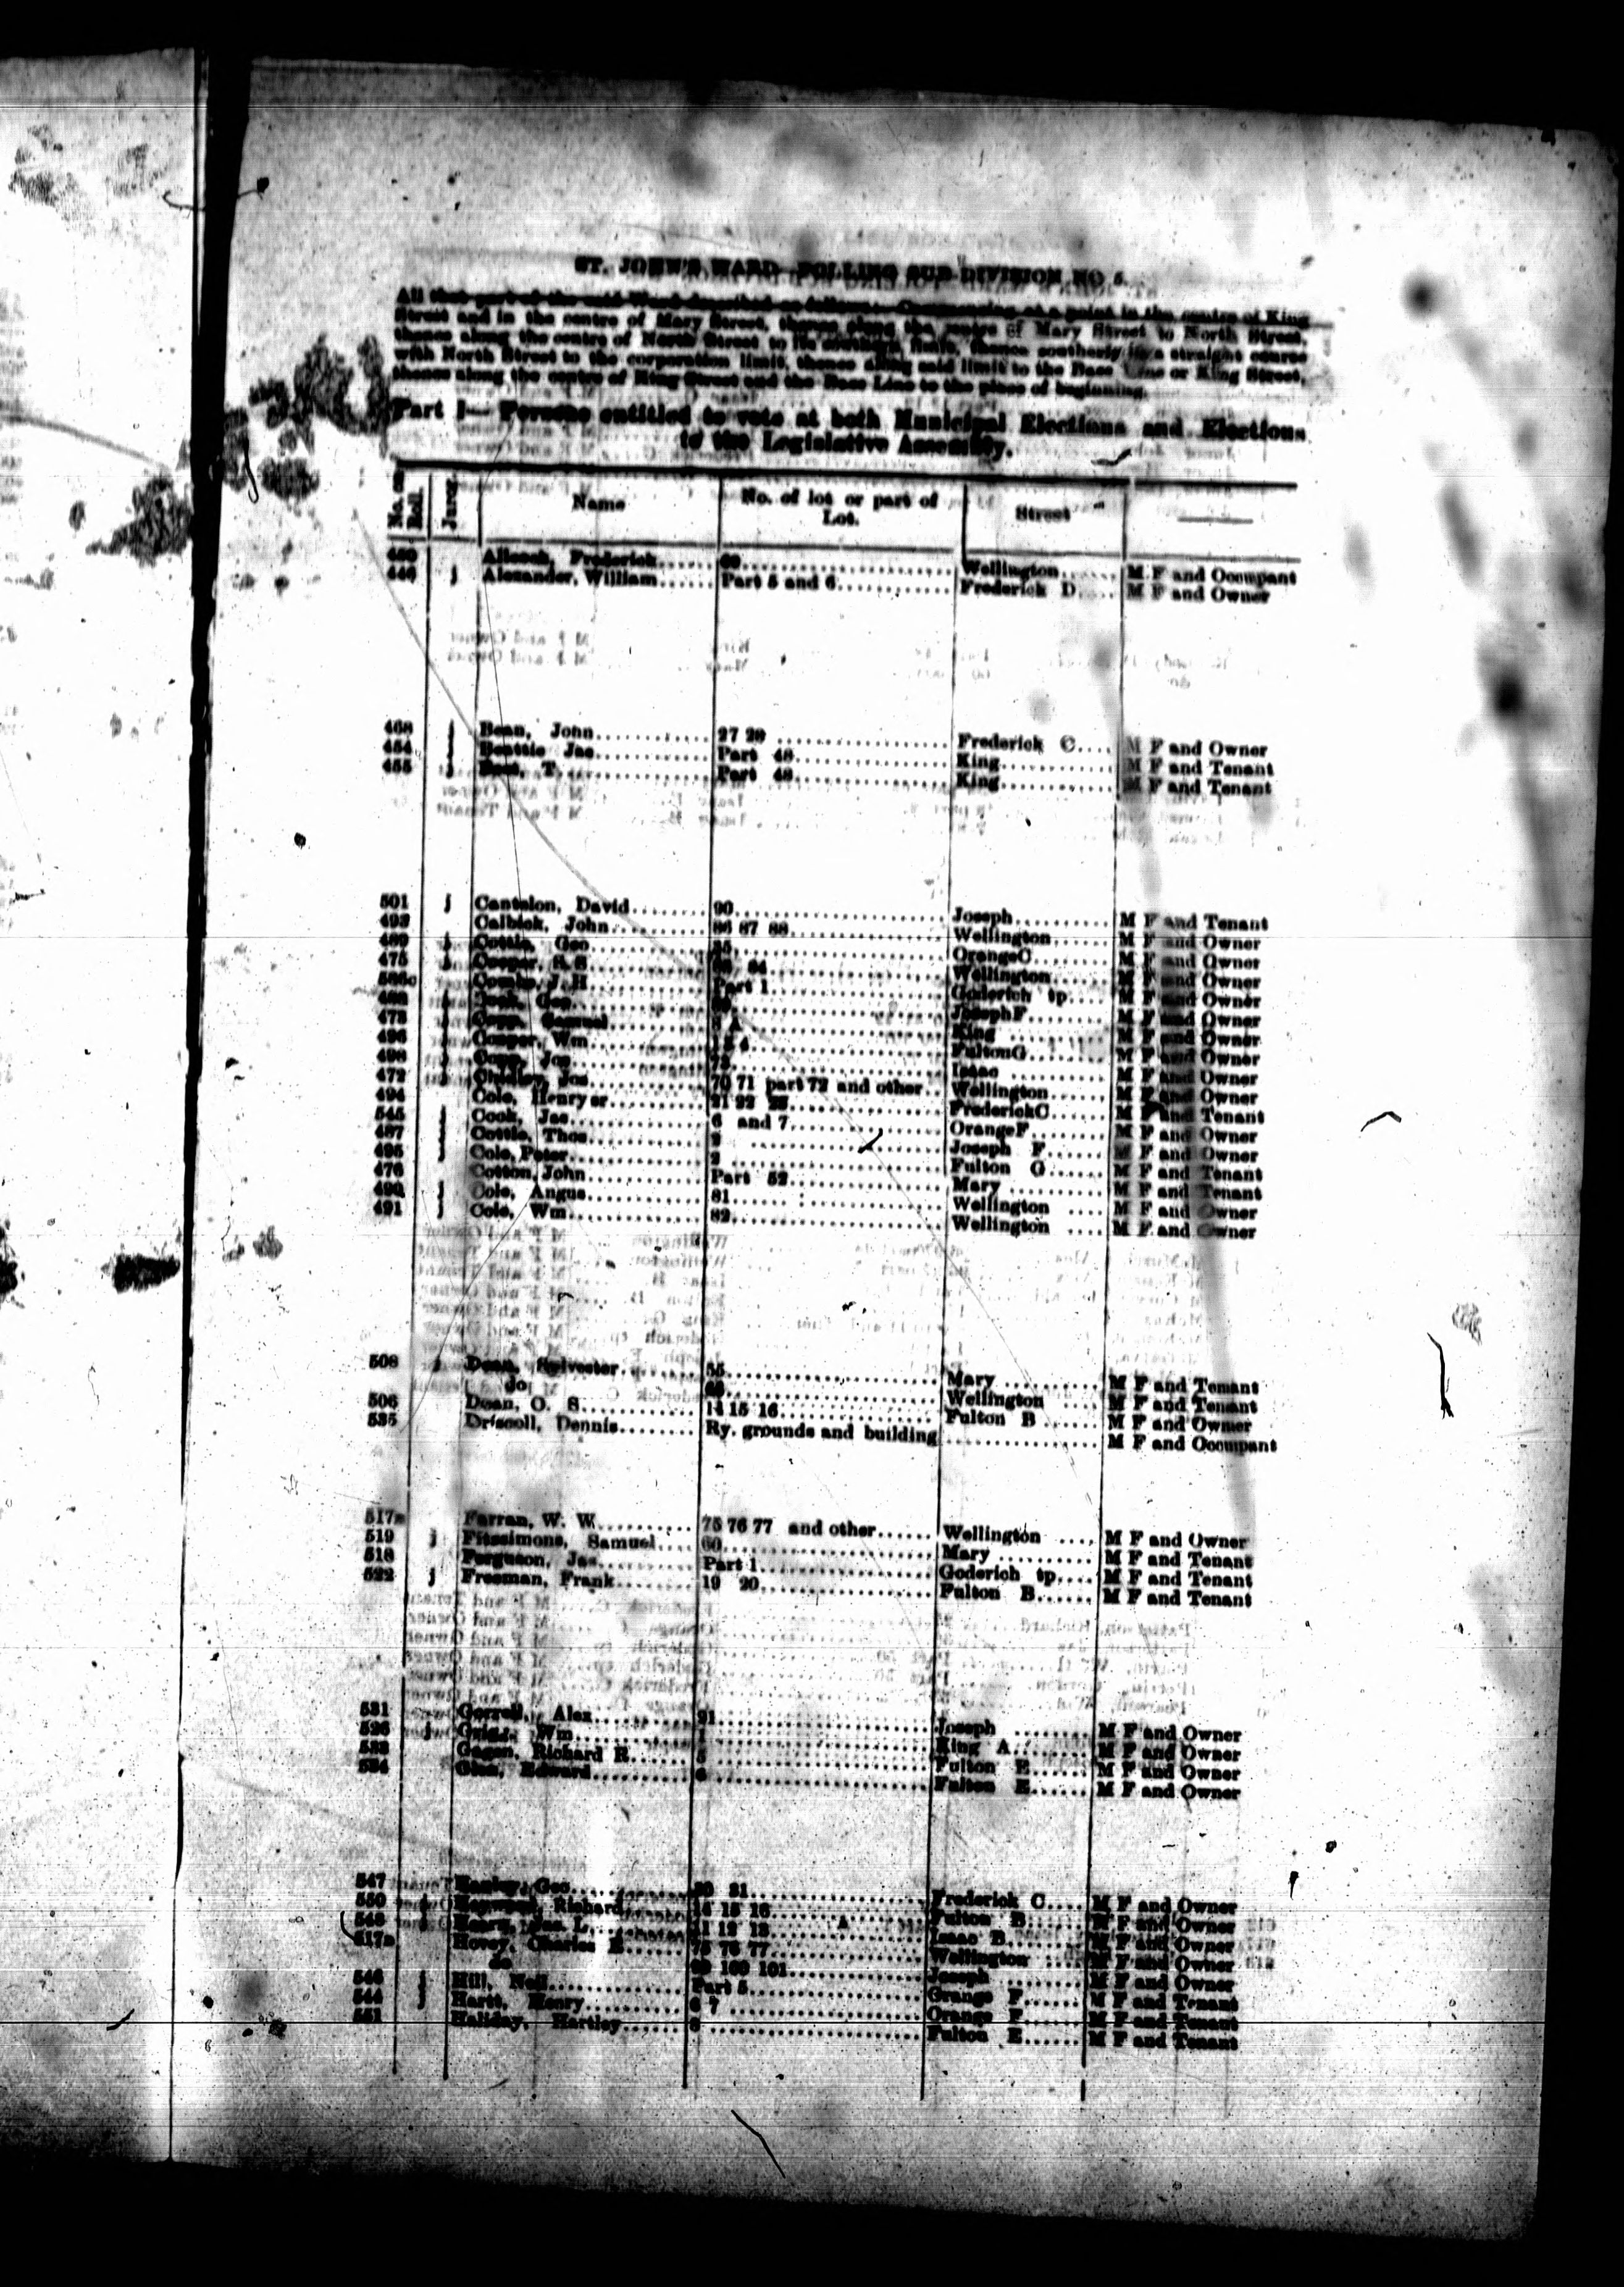 ST. JOHN'S WARD—POLLING SUB-DIVISION NO 5.
All that part of the said Ward described as follows: Commencing at a point in the centre of King
Street and in the centre of Mary Street, thence along the centre of Mary Street to North Street,
thence along the centre of North Street to its southern limit, thence southerly in a straight course
with North Street to the corporation limit, thence along said limit to the Base Line or King Street,
thence along the centre of King Street and the Base Line to the place of beginning.
Part I—Persons entitled to vote at both Municipal Elections and Elections
to the Legislative Assembly.
No. on Roll. Juror Name No. of lot or part of Lot. Street
Frederick Wellington M F and Occupant
446 j Alexander, William Part 5 and 6 Frederick D. M F and Owner
468 j Bean, John 27 28 Frederick C. M F and Owner
454 j Beattie Jas Part 48 King M F and Tenant
455 j T. Part 48 King M F and Tenant
501 j Cantelon, David 90 Joseph M F and Tenant
493 Calbick, John 86 87 88 Wellington M F and Owner
489 j Cottle, Geo OrangeC M F and Owner
475 j Cooper, S S Wellington M F and Owner
Combe, J. H Part 1 Goderich tp. M F and Owner
Geo. JosephF M F and Owner
473 j Copp, Samuel King M F and Owner
496 j Cooper, Wm FultonG M F and Owner
498 j Copp, Jos Isaac M F and Owner
472 j Chidley, Jos 70 71 part 72 and other Wellington M F and Owner
494 Cole, Henry sr 21 22 FrederickC M F and Tenant
545 Cook, Jas 6 and 7 OrangeF M F and Owner
487 Cottle, Thos 2 Joseph F M F and Owner
495 Cole, Peter 2 Fulton G M F and Tenant
476 Cotton, John Part 52 Mary M F and Tenant
490 j Cole, Angus 81 Wellington M F and Owner
491 j Cole, Wm 82 Wellington M F and Owner
508 j Dean, Sylvester Mary M F and Tenant
do Wellington M F and Tenant
506 Doan, O. S. 14 15 16 Fulton B M F and Owner
535 Driscoll, Dennis Ry. grounds and building M F and Occupant
517a Farran, W. W. 75 76 77 and other Wellington M F and Owner
519 j Fitzsimons, Samuel 60 Mary M F and Tenant
518 Ferguson, Jas Part 1 Goderich tp. M F and Tenant
522 j Freeman, Frank 19 20 Fulton B. M F and Tenant
531 Gorrell, Alex 91 Joseph M F and Owner
526 j Wm King A M F and Owner
533 Gagen, Richard R. 5 Fulton E M F and Owner
534 Glen, Edward 6 Fulton E. M F and Owner
547 Geo. Frederick C. M F and Owner
550 j Richard 14 15 16 Fulton B M F and Owner
j 11 12 13 Isaac B. M F and Owner
517a Hovey, Charles E 75 76 77 Wellington M F and Owner
do 99 100 101 Joseph M F and Owner
j Hill, Neil Part 5 Orange F M F and Tenant
544 j Hartt, Henry 6 7 Orange F M F and Tenant
551 Haliday, Hartley 6 Fulton E M F and Tenant